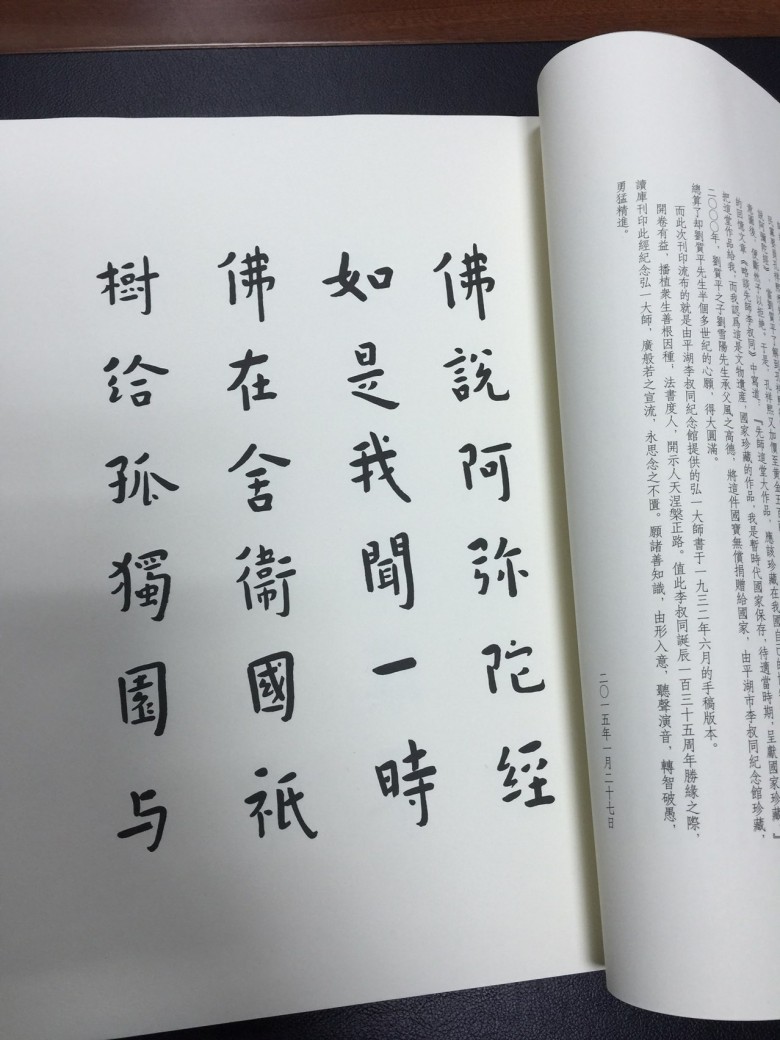 的回憶文章《略談先師李叔同》中寫道，『先師這堂大作品，應該珍藏在我國自己的
把這堂作品給我，而我認爲這是文物遺産，國家珍藏的作品，我是暫時代國家保存，待適當時期，呈獻國家珍藏。』
二〇〇〇年，劉質平之子劉雪陽先生承父風之高德，將這件國寶無償捐贈給國家，由平湖市李叔同紀念館珍藏，
總算了却劉質平先生半個多世紀的心願，得大圓滿。
而此次刊印流布的就是由平湖李叔同紀念館提供的弘一大師書于一九三二年六月的手稿版本。
開卷有益，播植衆生善根因種，法書度人，開示人天涅槃正路。值此李叔同誕辰一百三十五周年勝緣之際，
讀庫刊印此經紀念弘一大師，廣般若之宣流，永思念之不匱。願諸善知識，由形入意，聽聲演音，轉智破愚，
勇猛精進。
二〇一五年一月二十七日
佛說阿弥陀經
如是我聞一時
佛在舍衞國祇
樹給孤獨園与